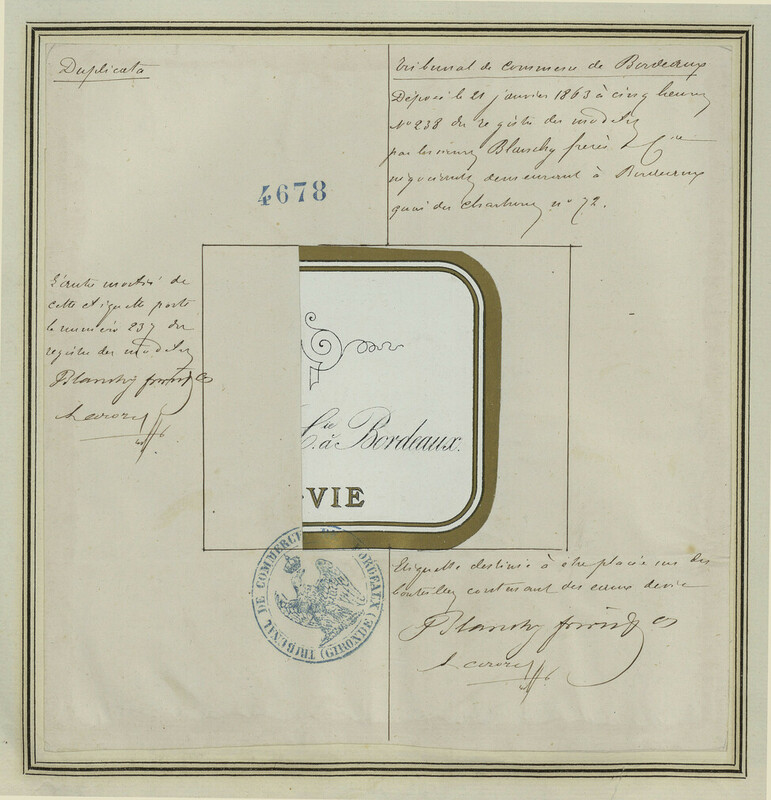 Duplicata
Tribunal de commerce de Bordeaux
Déposé le 21 janvier 1863 à cinq heures
No 238 du registre des modèles
par les sieurs Blanchy frères & Cie
négociants demeurant à Bordeaux
quai des Chartrons no 72.
4678
L'autre moitié de
cette étiquette porte
le numéro 237 du
registre des modèles
Blanchy frères & Co
Cie à Bordeaux.
-VIE
TRIBUNAL DE COMMERCE DE BORDEAUX (GIRONDE)
Etiquette destinée à être placée sur des
bouteilles contenant des eaux de vie
Blanchy frères & Co